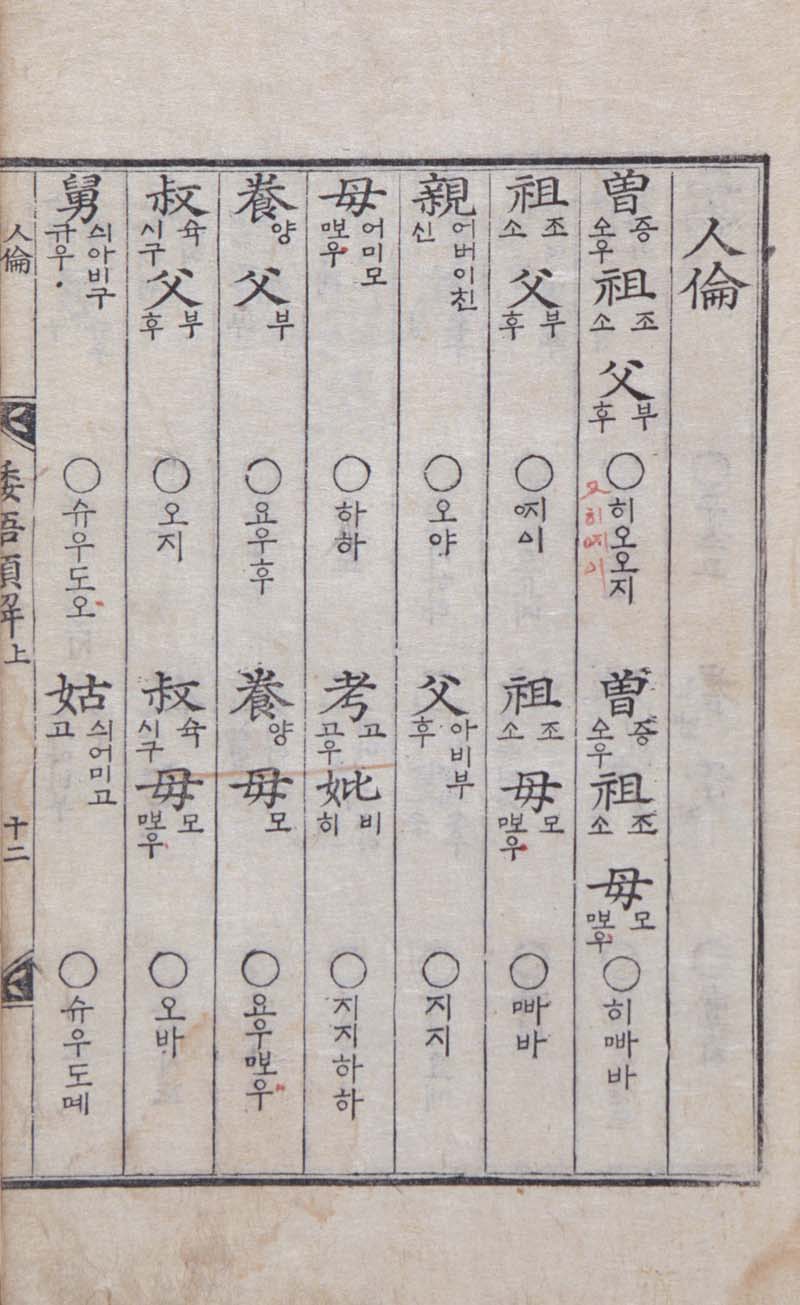 人倫
曽 증 소우 祖 조 소 父 부 후 ○ 히오오지 又히ᅈᅵ이 曽 증 소우 祖 조 소 母 모 ᄜᅩ우 ○ 히ᄜᅡ바
祖 조 소 父 부 후 ○ ᅈᅵ이 祖 조 소 母 모 ᄜᅩ우 ○ ᄜᅡ바
親 어버이친 신 ○ 오야 父 아비부 후 ○ 지지
母 어미모 ᄜᅩ우 ○ 하하 考 고 고우 妣 비 히 ○ 지지하하
養 양 父 부 ○ 요우후 養 양 母 모 ○ 요우ᄜᅩ우
叔 슉 시구 父 부 후 ○ 오지 叔 슉 시구 母 모 ᄜᅩ우 ○ 오바
舅 싀아비구 규우 ○ 슈우도오 姑 싀어미고 고 ○ 슈우도몌
人倫 倭語類解上 十二